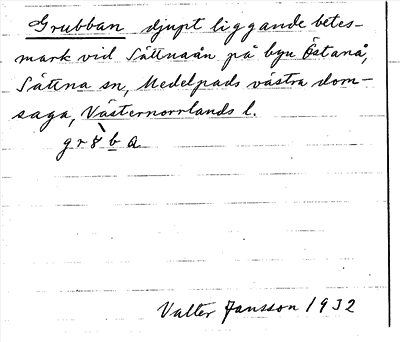 Grubban djupt liggande betes-
mark vid Sättnaån på byn Östanå,
Sättna sn, Medelpads västra dom-
saga, Västernorrlands l.
Valter Jansson 1932